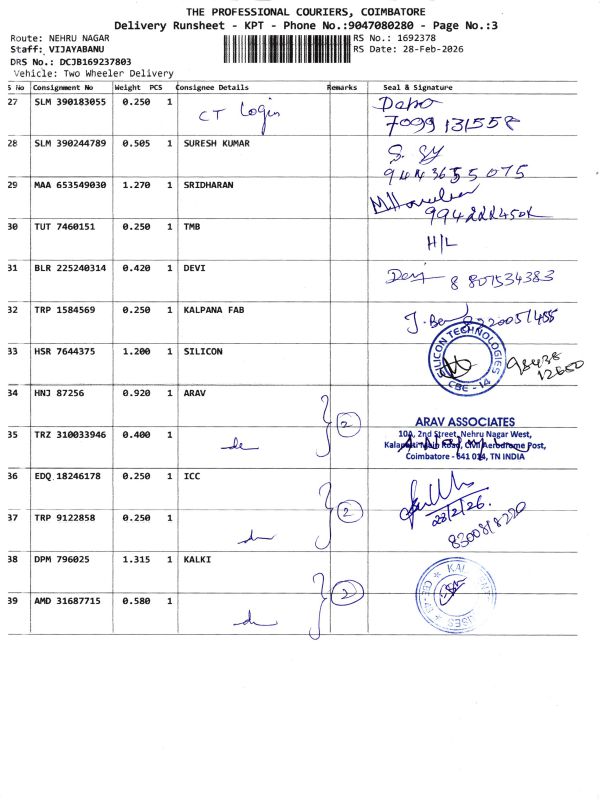 THE PROFESSIONAL COURIERS, COIMBATORE
Delivery Runsheet - KPT - Phone No.:9047080280 - Page No.:3
Route: NEHRU NAGAR
RS No.: 1692378
Staff: VIJAYABANU
RS Date: 28-Feb-2026
DRS No.: DCJB169237803
Vehicle: Two Wheeler Delivery
S No Consignment No Weight PCS Consignee Details Remarks Seal & Signature
27 SLM 390183055 0.250 1 CT Login
7099131558
28 SLM 390244789 0.505 1 SURESH KUMAR
9443655075
29 MAA 653549030 1.270 1 SRIDHARAN
30 TUT 7460151 0.250 1 TMB H/L
31 BLR 225240314 0.420 1 DEVI Devi 8807534383
32 TRP 1584569 0.250 1 KALPANA FAB
33 HSR 7644375 1.200 1 SILICON
SILICON TECHNOLOGIES
CBE - 14
98438
12660
34 HNJ 87256 0.920 1 ARAV 2
ARAV ASSOCIATES
10A, 2nd Street, Nehru Nagar West,
Kalapatti Main Road, Civil Aerodrome Post,
Coimbatore - 641 014, TN INDIA
35 TRZ 310033946 0.400 1 do
36 EDQ 18246178 0.250 1 ICC 2
28/2/26.
8300818220
37 TRP 9122858 0.250 1 do
38 DPM 796025 1.315 1 KALKI 2
39 AMD 31687715 0.580 1 do